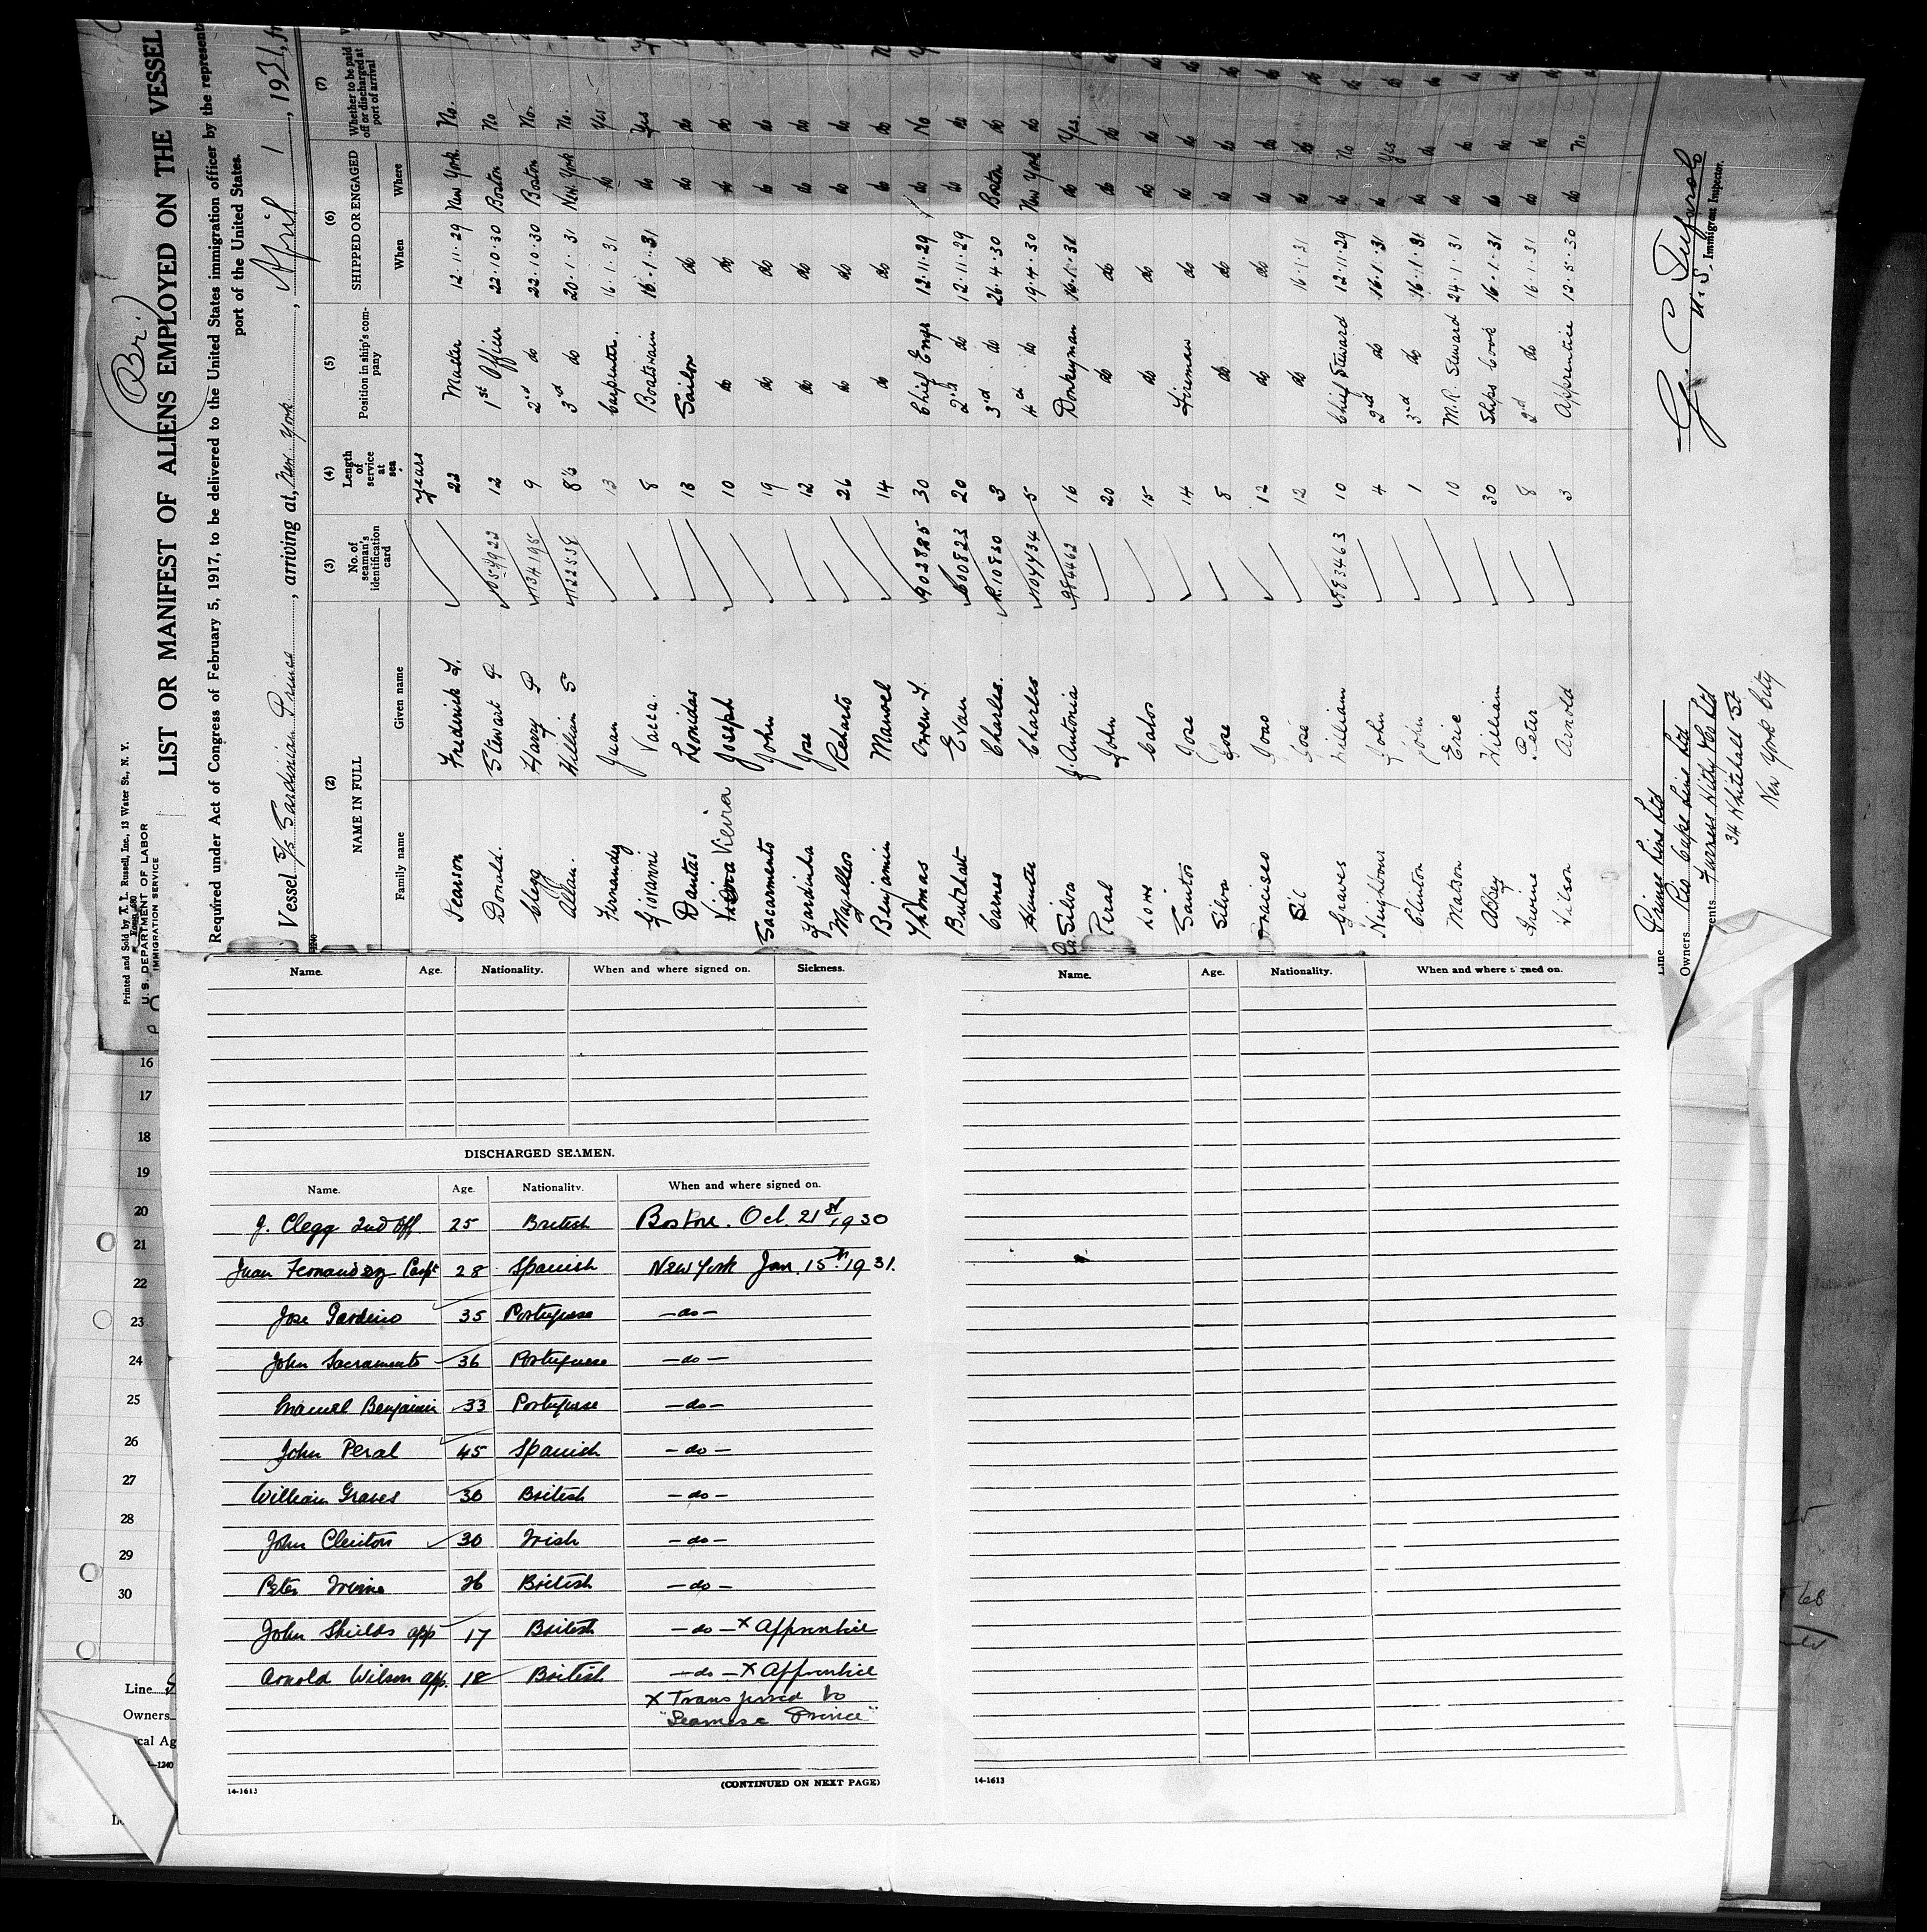 Printed and Sold by A. L. Russell, Inc., 13 Water St., N. Y.
U. S. DEPARTMENT OF LABOR
IMMIGRATION SERVICE
Br.
LIST OR MANIFEST OF ALIENS EMPLOYED ON THE VESSEL
Required under Act of Congress of February 5, 1917, to be delivered to the United States immigration officer by the represent
port of the United States.
Vessel S/S Sardinian Prince, arriving at, New York, April 1, 1931, fr
(2) (3) (4) (5) (6) (7)
NAME IN FULL No. of seaman's identification card Length of service at sea Position in ship's company SHIPPED OR ENGAGED Whether to be paid off or discharged at port of arrival
Family name Given name When Where
years
Pearson Frederick 22 Master 12.11.29 New York. No.
Donald. Stewart P 12 1st Officer 22.10.30 Boston No
Clegg Harry P 134195 9 2nd do 22.10.30 Boston No.
Allan. William S 8½ 3rd do 20.1.31 New York No.
Fernandez Juan 13 Carpenter. 16.1.31 do Yes
Giovanni Vacca. 8 Boatswain 16.1.31 do Yes
Dantas Lonidas 13 Sailor do do do
Vieira Joseph 10 do do do do
Sacarmento John 19 do do do do
Jardinha Jose 12 do do do do
Magellos Roberto 26 do do do do
Benjamin Manoel 14 do do do do
Thomas Owen L. 902885 30 Chief Engr 12.11.29 do No
Butchart Evan 600823 20 2nd do 12.11.29 do do
Carnes Charles. R.10830 3 3rd do 26.4.30 Boston do
Hunter Charles 5 4th do 19.4.30 New York do
Da Silva J. Antonia 984462 16 Donkeyman 16.1.31 do Yes.
Peral John 20 do do do do
Calos 15 do do do do
Santos Jose 14 Fireman do do do
Silva Jose 8 do do do do
Joao 12 do do do do
Jose 12 do 16.1.31 do do
Graves William 583463 10 Chief Steward 12.11.29 do No
Neighbour John 4 2nd do 16.1.31 do Yes
Clinton John 1 3rd do 16.1.31 do do
Matson Eric 10 M.R. Steward 24.1.31 do do
Abbey William 30 Ships Cook 16.1.31 do do
Irvine Peter 8 2nd do 16.1.31 do do
Wilson Arnold 3 Apprentice 12.5.30 do no
Line Prince Line Ltd
Owners Rio Cape Line Ltd
ents Furness Withy & Co Ltd
34 Whitehall St
New York City
U. S. Immigrant Inspector.
Name. Age. Nationality. When and where signed on. Sickness.
DISCHARGED SEAMEN.
Name. Age. Nationality. When and where signed on.
J. Clegg 2nd Off 25 British Boston. Oct. 21st 1930
Juan Fernandez Carpt 28 Spanish New York Jan. 15th 1931.
Jose Gardino 35 Portuguese — do —
John Sacramento 36 Portuguese — do —
Manuel Benjamin 33 Portuguese — do —
John Peral 45 Spanish — do —
William Graves 30 British — do —
John Clinton 30 Irish — do —
Peter Irvine 26 British — do —
John Shields app 17 British — do — x Apprentice
Arnold Wilson app. 18 British — do — x Apprentice
x Transferred to
"Siamese Prince"
14-1613 (CONTINUED ON NEXT PAGE)
Name. Age. Nationality. When and where signed on.
14-1613
16
17
18
19
20
21
22
23
24
25
26
27
28
29
30
Line
Owners
cal Ag
-1240